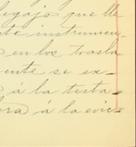 legajo que lle
te instrumen
en los trasla
ente se ex-
á la testa-
ora) á la evic-